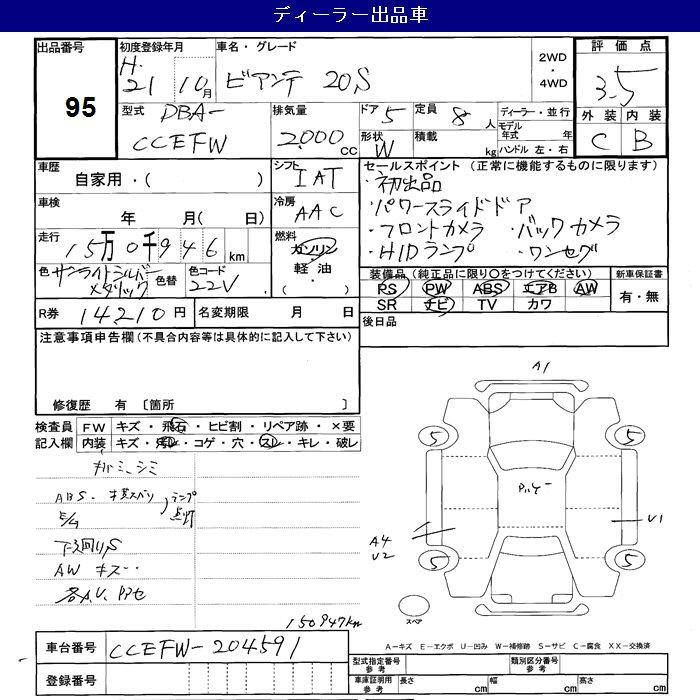 ディーラー出品車
出品番号 95
初度登録年月 H. 21 10月
車名・グレード ビアンテ 20S
2WD・4WD
評価点 3.5
型式 DBA-CCEFW
排気量 2000cc
ドア 5
形状 W
定員 8人
積載 kg
ディーラー・並行
モデル年式 年
ハンドル 左・右
外装 C
内装 B
車歴 自家用・( )
シフト IAT
セールスポイント (正常に機能するものに限ります)
・初出品
・パワースライドドア
・フロントカメラ ・バックカメラ
・HIDランプ ・ワンセグ
車検 年 月( 日)
冷房 AAC
走行 15万0千946km
燃料 ガソリン・軽油・( )
色 サンライトシルバーメタリック
色替
色コード 22V
装備品 (純正品に限り○をつけてください)
PS PW ABS エアB AW
SR ナビ TV カワ
新車保証書 有・無
R券 14,210円
名変期限 月 日
後日品
注意事項申告欄(不具合内容等は具体的に記入して下さい)
修復歴 有 〔箇所 〕
検査員記入欄
FW キズ・飛石・ヒビ割・リペア跡・×要
内装 キズ・汚レ・コゲ・穴・スレ・キレ・破レ
シミ
ABS.
E/G
ランプ点灯
下廻りS
AW キズ
各A.U.
150947km
A1
5
5
5
5
A4
U2
U1
スペア
A-キズ E-エクボ U-凹み W-補修跡 S-サビ C-腐食 XX-交換済
車台番号 CCEFW-204591
登録番号
型式指定番号 参考
類別区分番号 参考
車庫証明用 参考
長さ cm 幅 cm 高さ cm